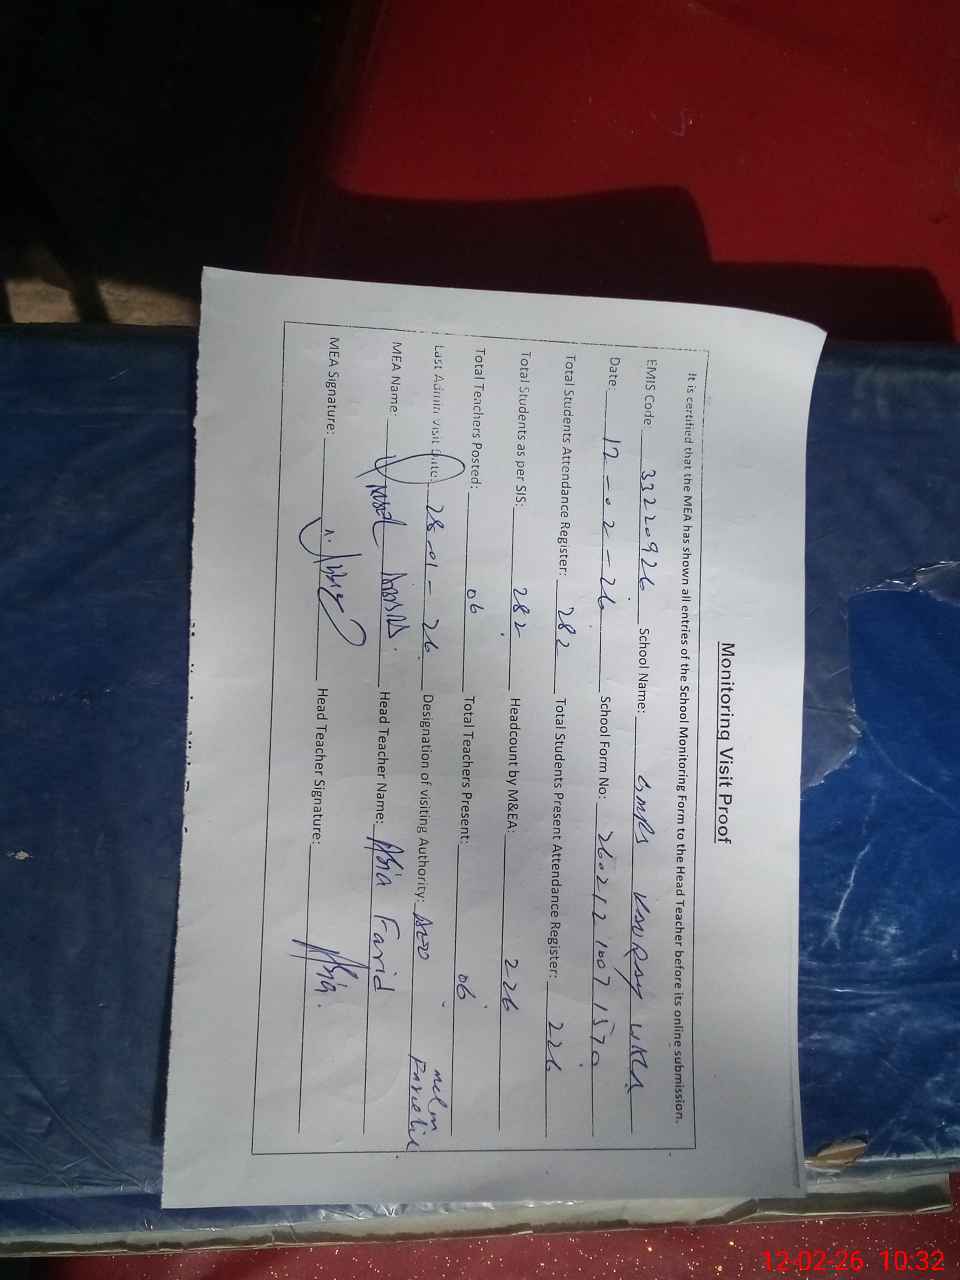 Monitoring Visit Proof
It is certified that the MEA has shown all entries of the School Monitoring Form to the Head Teacher before its online submission.
EMIS Code: 33220926 School Name: GMPS
Date: 12-02-26 School Form No: 2602121007 1570
Total Students Attendance Register: 282 Total Students Present Attendance Register: 226
Total Students as per SIS: 282 Headcount by M&EA: 226
Total Teachers Posted: 06 Total Teachers Present: 06
Last Admin Visit Date: 28-01-26 Designation of visiting Authority:
MEA Name: Head Teacher Name: Asia Farid
MEA Signature: Head Teacher Signature: Asia
12-02-26 10:32